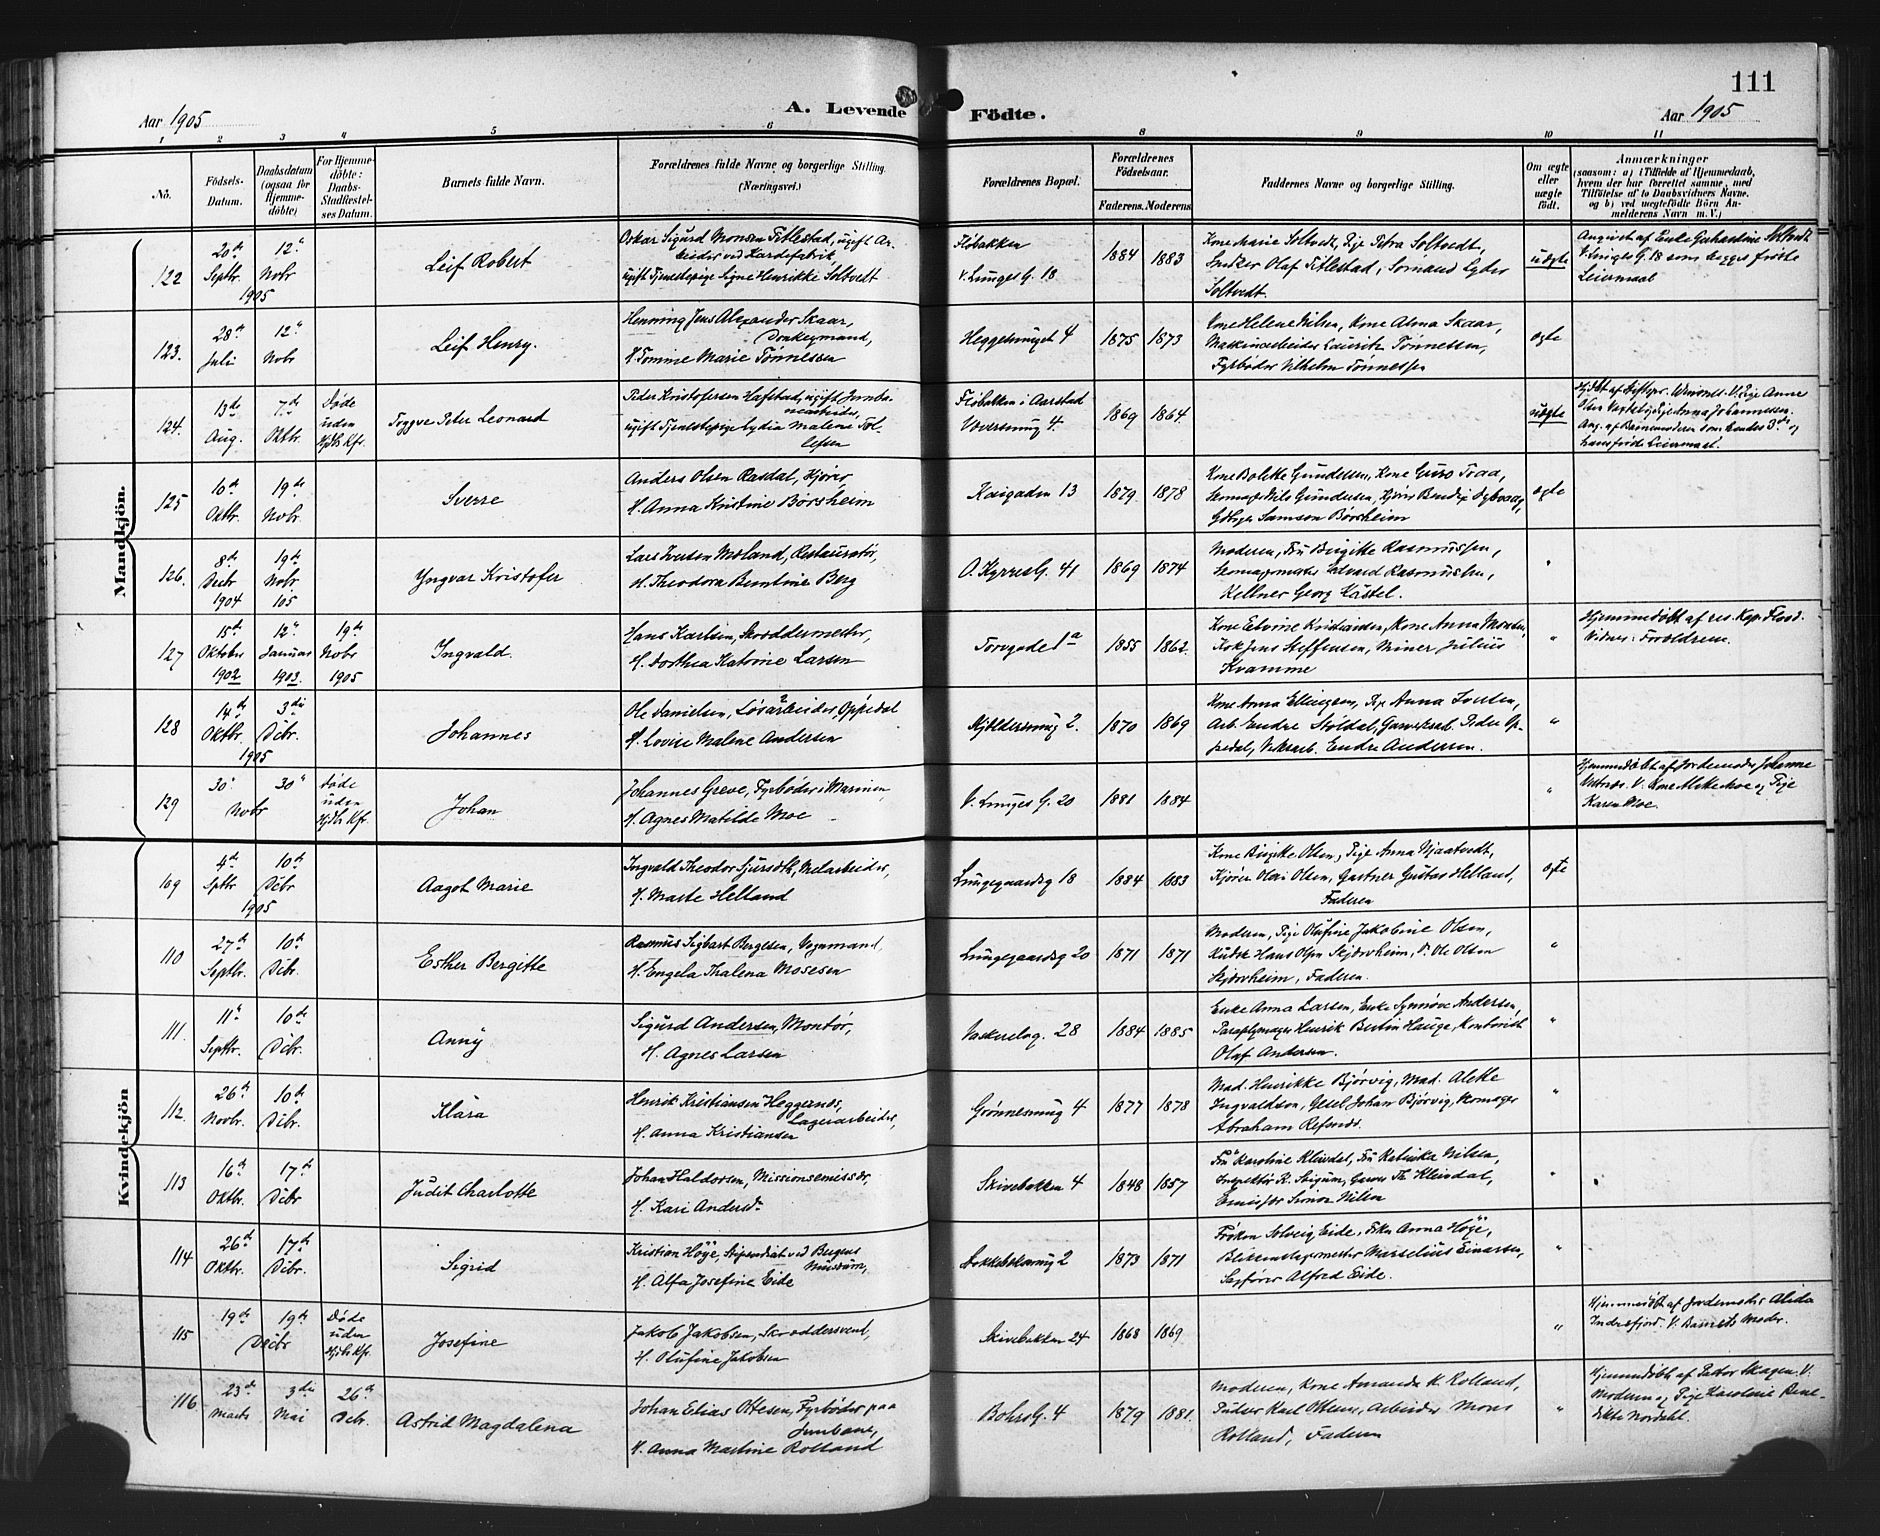 111
Aar 1905
A. Levende Födte.
Aar 1905
1 2 3 4 5 6 8 9 10 11
No.
Födsels-Datum.
Daabsdatum (ogsaa for Hjemmedöbte)
For Hjemmedöbte: Daabs-Stadfæstelses Datum.
Barnets fulde Navn.
Forældrenes fulde Navne og borgerlige Stilling.
(Næringsvei.)
Forældrenes Bopæl.
Forældrenes Födselsaar.
Faderens. Moderens.
Faddernes Navne og borgerlige Stilling.
Om ægte eller uægte födt.
Anmærkninger
(saasom: a) i Tilfælde af Hjemmedaab,
hvem der har forrettet samme, med
Tilföielse af to Daabsvidners Navne.
og b) ved uægtefödte Börn An-
melderens Navn m. V.)
Mandkjön.
122 20de Septbr. 1905 12te Novbr
Leif Robert
Oskar Sigurd Monsen Titlestad, ugift Ar-
beider ved Kardefabrik,
ugift Tjenestepige Signe Henrikke Soltvedt
Fløbakken
V. Lunges G. 18
1884 1883
Kone Marie Soltvedt, Pige Petra Soltvedt,
Snedker Olaf Titlestad, Sømand Lyder
Soltvedt.
uægte
V. Lunges G. 18 som begges første
Leiermaal
123. 28de Juli 12te Nobr
Leif Henry.
Henning Jens Alexander Skaar,
Donkeymand,
H. Tomine Marie Tønnessen
Heggesmuget 4
1875 1873
Kone Helene Nilsen, Kone Alma Skaar,
Maskinarbeider Lauritz Tønnessen,
Fyrbøder Vilhelm Tønnessen
ægte
124. 13de Aug. 7de Oktbr.
Døde uden Hjdb. Kfr.
Tryggve Peter Leonard
Peder Kristofersen Hafstad, ugift Jernba-
nearbeider,
ugift Tjenestepige Lydia Malene Tol-
lefsen
Fløbakken i Aarstad
1869 1864.
uægte
Leiermaal.
125 10de Oktbr. 19de Novbr.
Sverre
Anders Olsen Rasdal, Kjører
H. Anna Kristine Børsheim
Kaigaden 13
1879 1878
Kone Bolette Gundersen, Kone Guro Traa,
Gdbrger Samson Børsheim
ægte
126. 8de Decbr 1904 19de Nobr 105
Yngvar Kristofer
Lars Iversen Moland, Restauratør,
H. Theodora Berntine Berg
O. Kyrresg. 41
1869 1874
Moderen, Fru Birgitte Rasmussen,
Skomagermester Edvard Rasmussen,
Kellner Georg Kästel.
"
127 15de Oktober 1902 12te Januar 1903. 19de Nobr 1905
Ingvald.
Hans Karlsen, Skræddermester,
H. Dorthea Katrine Larsen
Torvgade 1a
1855 1862.
Kone Elvine Kristiansen, Kone Anna Monsen,
Kok Jens Steffensen, Miner Julius
Kvamme
"
Hjemmedøbt af res. Kap. Flood.
Vidner: Forældrene.
128 14de Oktbr. 1905 3die Decbr.
Johannes
Ole Danielsen, Løsarbeider, Oppedal
H. Lovise Malene Andersen
1870 1869
Kone Anna Ellingsen, Pige Anna Iversen,
Arb. Endre Støldal, Garverarb. Peder Op-
pedal, Vekrarb. Endre Andersen.
"
129 30te 30te Nobr
Døde uden Hjdb. Kfr.
Johan
Johannes Greve, Fyrbøder i Marinen,
H. Agnes Matilde Moe
V. Lunges G. 20
1881 1884
"
Hjemmedøbt af Jordemoder Johanne
V. Kone Mette Moe og Pige
Karen Moe.
Kvindekjön
109 4de Sptbr 1905 10de Dcbr
Aagot Marie
Ingvald Theodor Sjursøth, Melarbeider,
H. Marte Helland
Lungegaardsg 18
1884 1883
Kone Birgitte Olsen, Pige Anna Mjaatvedt,
Kjører Oluf Olsen, Gartner Gustav Helland,
Faderen
ægte
110 27de Septbr. 10de Dcbr.
Esther Bergitte
Rasmus Sigbart Bergesen, Vognmand,
H. Engela Thalena Mosesen
Lungegaardsg 20
1871 1871
Moderen, Pige Olufine Jakobine Olsen,
Kudsk Hans Olsen Skjærvheim, Do Ole Olsen
Skjærvheim, Faderen.
"
111. 11te Septbr. 10de Dcbr.
Anny
Sigurd Andersen, Montør,
H. Agnes Larsen
Vaskerelvg. 28
1884 1885
Enke Anna Larsen, Enke Synnøve Andersen,
Paraplymager Henrik Bertin Hauge, Kontorist
Olaf Andersen.
"
112. 26de Novbr. 10de Dcbr.
Klara
Henrik Kristiansen Heggernes,
Lagerarbeider,
H. Anna Kristiansen
Grønnesmug 4
1877 1878
Mad. Henrikke Bjørvig, Mad. Alette
Ingvaldsen, Johan Bjørvig, Skomager
Abraham Refsnes.
"
113 16de Oktbr. 17de Dcbr
Judit Charlotte
Johan Haldorsen, Missionsemissær,
H. Kari Andersdr
Skivebakken 4
1848 1857
Fru Karoline Kleivdal, Fru Katinka Nilsen,
Inspektør K. Stigum, Garver Th. Kleivdal,
Emissær Simon Nilsen
"
114 26de Oktbr. 17de Dcbr.
Sigrid
Kristian Høÿe, Stipendiat ved Bergens
Museum,
H. Alfa Josefine Eide
1873 1871
Frøken Solveig Eide, Frkn Anna Høÿe,
Blikkenslagermester Marselius Einarsen,
Skpfører Alfred Eide.
"
115 19de 19de Decbr
Døde uden Hjdb. Kfr.
Josefine
Jakob Jakobsen, Skræddersvend,
H. Olufine Jakobsen
Skivebakken 24
1868 1869
"
Hjemmedøbt af Jordemoder Alida
Indrefjord. V. Barnets Moder.
116 23de Marts 3die Mai 26de Dcbr.
Astrid Magdalena
Johan Elias Ottesen, Fyrbøder paa
Jernbane,
H. Anna Martine Rolland
BohrsG. 4
1879 1881.
Moderen, Kone Amanda H. Rolland,
Pudser Karl Ottesen, Arbeider Mons
Rolland, Faderen
"
Hjemmedøbt af Pastor Skagen. V.
Moderen og Pige Karoline Bene-
dikte Nordahl.